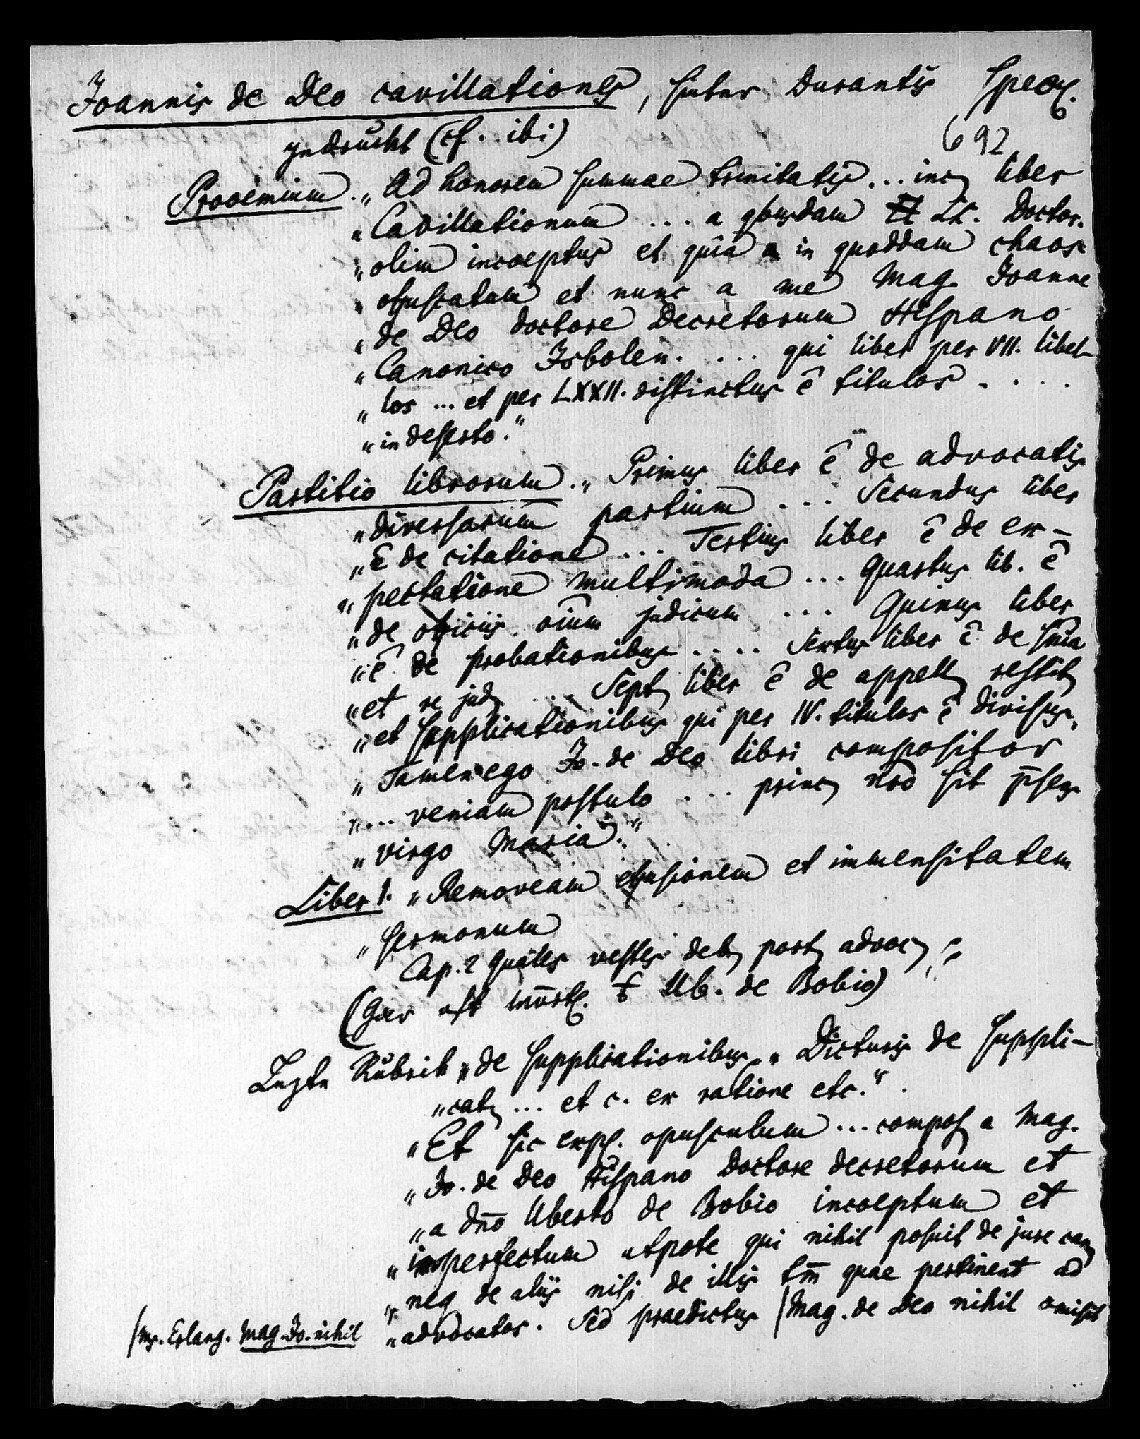 Joannis de Deo cavillationes, hinter Durantis Spec.
gedruckt (cf. ibi)
692
Prooemium. „Ad honorem summae trinitatis... inc liber
„Cavillationum ... a quibusdam LL. Doctor.
„olim incoeptus et quia in quoddam chaos
„obfuscatum et nunc a me Mag. Joanne
„de Deo doctore Decretorum Hispano
„Canonico Isbolen. ... qui liber per VII. libel-
„los ... et per LXXII. distinctus ē titulos ....
„in deserto.“
Partitio librorum. „Primus liber ē de advocatis
„diversarum partium ... Secundus liber
„ē de citatione ... Tertius liber ē de ex-
„pectatione multimoda ... Quartus lib. ē
„de officiis oīum judicum ... Quintus liber
„ē de probationibus .... Sextus liber ē de snia
„et re jud ... Sept liber ē de appell restit
„et supplicationibus qui per IV. titulos ē divisus.
„Tamen ego Jo. de Deo libri compositor
„... veniam postulo ... princ sit
„virgo Maria.“
Liber 1. „Removeam effusionem et immensitatem
„sermonum
Cap. 2 Quales vestes deb port advoc
(Hier oft Ub. de Bobio)
Lezte Rubrik „de supplicationibus „Dicturis de suppli-
„cat ... et c. ex ratione etc.“
„Et sic expl. opusculum ... compos a Mag.
„Jo. de Deo Hispano Doctore decretorum et
„a dno Uberto de Bobio incoeptum et
„imperfectum utpote qui nihil posuit de jure can
„neq de aliis nisi de illis tm quae pertinent ad
„advocatos. Sed praedictus /Mag. de Deo nihil omisit
/ms. Erlang. Mag. Jo. nihil